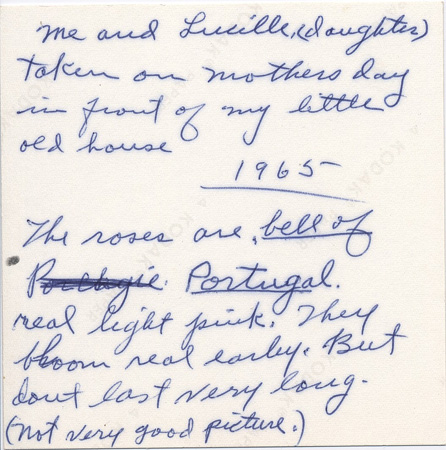 me and Lucille, (daughter)
taken on mothers day
in front of my little
old house
1965
The roses are, bell of
Portugal.
real light pink. They
bloom real earley. But
dont last very long.
(not very good picture.)